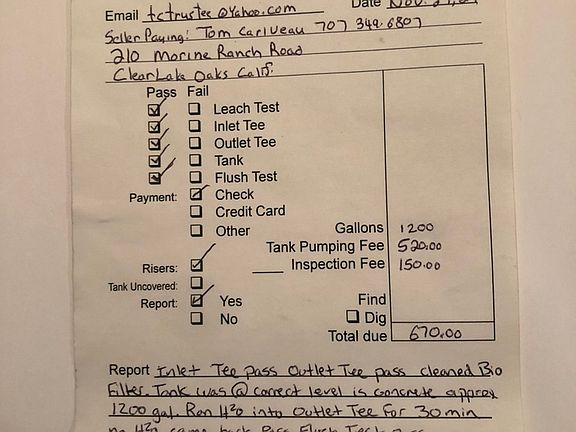 Email tctrustee@yahoo.com Date Nov.
Seller Paying: Tom Carlveau 707 349.6807
210 Morine Ranch Road
ClearLake Oaks Calif.
Pass Fail
Leach Test
Inlet Tee
Outlet Tee
Tank
Flush Test
Payment: Check
Credit Card
Other Gallons 1200
Tank Pumping Fee 520.00
Risers: Inspection Fee 150.00
Tank Uncovered:
Report: Yes Find
No Dig
Total due 670.00
Report Inlet Tee pass Outlet Tee pass cleaned Bio
Filter. Tank was @ correct level is concrete approx
1200 gal. Ran H20 into Outlet Tee For 30 min
no H20 came back Pass Flush Test